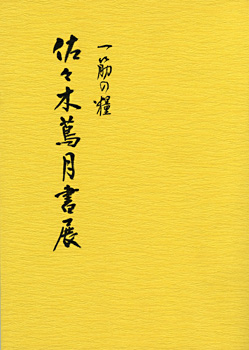 一筋の糧
佐々木蔦月書展